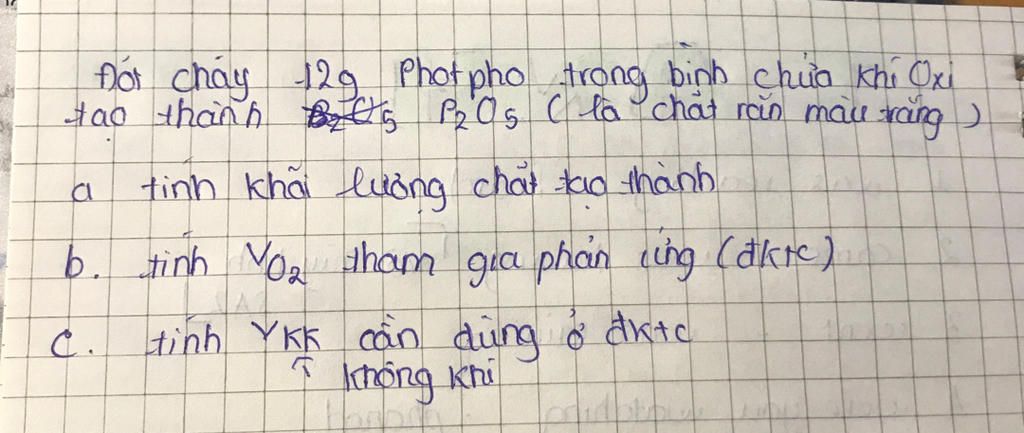 Đốt cháy 12g Photpho trong bình chứa khí Oxi
tạo thành P₂O₅ (là chất rắn màu trắng)
a tính khối lượng chất tạo thành
b. tính VO₂ tham gia phản ứng (đktc)
c. tính VKK cần dùng ở đktc
↑ không khí